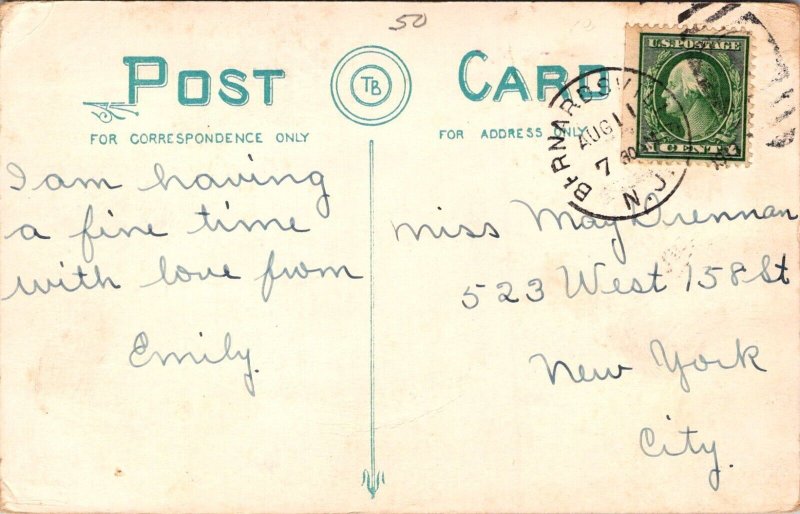 50
POST CARD
TB
FOR CORRESPONDENCE ONLY
FOR ADDRESS ONLY
U.S. POSTAGE
1 CENT 1
AUG 11
7 30
N.J.
I am having
a fine time
with love from
Emily.
Miss May Drennan
523 West 158 St
New York
City.